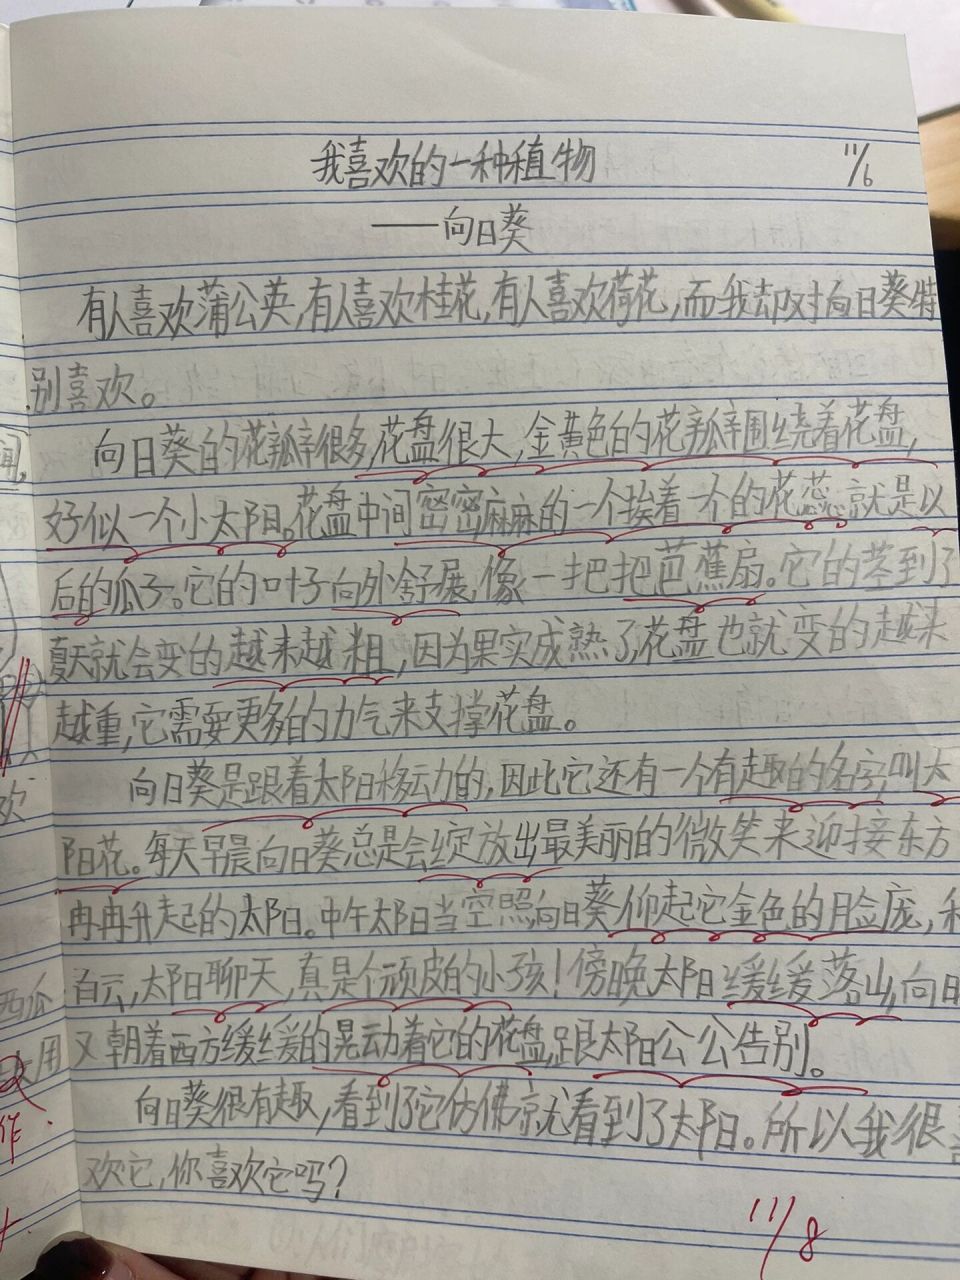 我喜欢的一种植物 11/6
——向日葵
有人喜欢蒲公英,有人喜欢桂花,有人喜欢荷花,而我却对向日葵特
别喜欢。
向日葵的花瓣很多,花盘很大,金黄色的花瓣围绕着花盘,
好似一个小太阳。花盘中间密密麻麻的一个挨着一个的花蕊就是以
后的瓜子。它的叶子向外舒展,像一把把芭蕉扇。它的茎到了
夏天就会变的越来越粗,因为果实成熟了花盘也就变的越来
越重,它需要更多的力气来支撑花盘。
向日葵是跟着太阳移动的,因此它还有一个有趣的名字,叫太
阳花。每天早晨向日葵总是会绽放出最美丽的微笑来迎接东方
冉冉升起的太阳。中午太阳当空照向日葵仰起它金色的脸庞,和
白云,太阳聊天,真是个顽皮的小孩!傍晚太阳缓缓落山,向日
又朝着西方缓缓的晃动着它的花盘,跟太阳公公告别。
向日葵很有趣,看到了它仿佛就看到了太阳。所以我很喜
欢它,你喜欢它吗?
11/8
闻,
欢
西瓜
用
作.